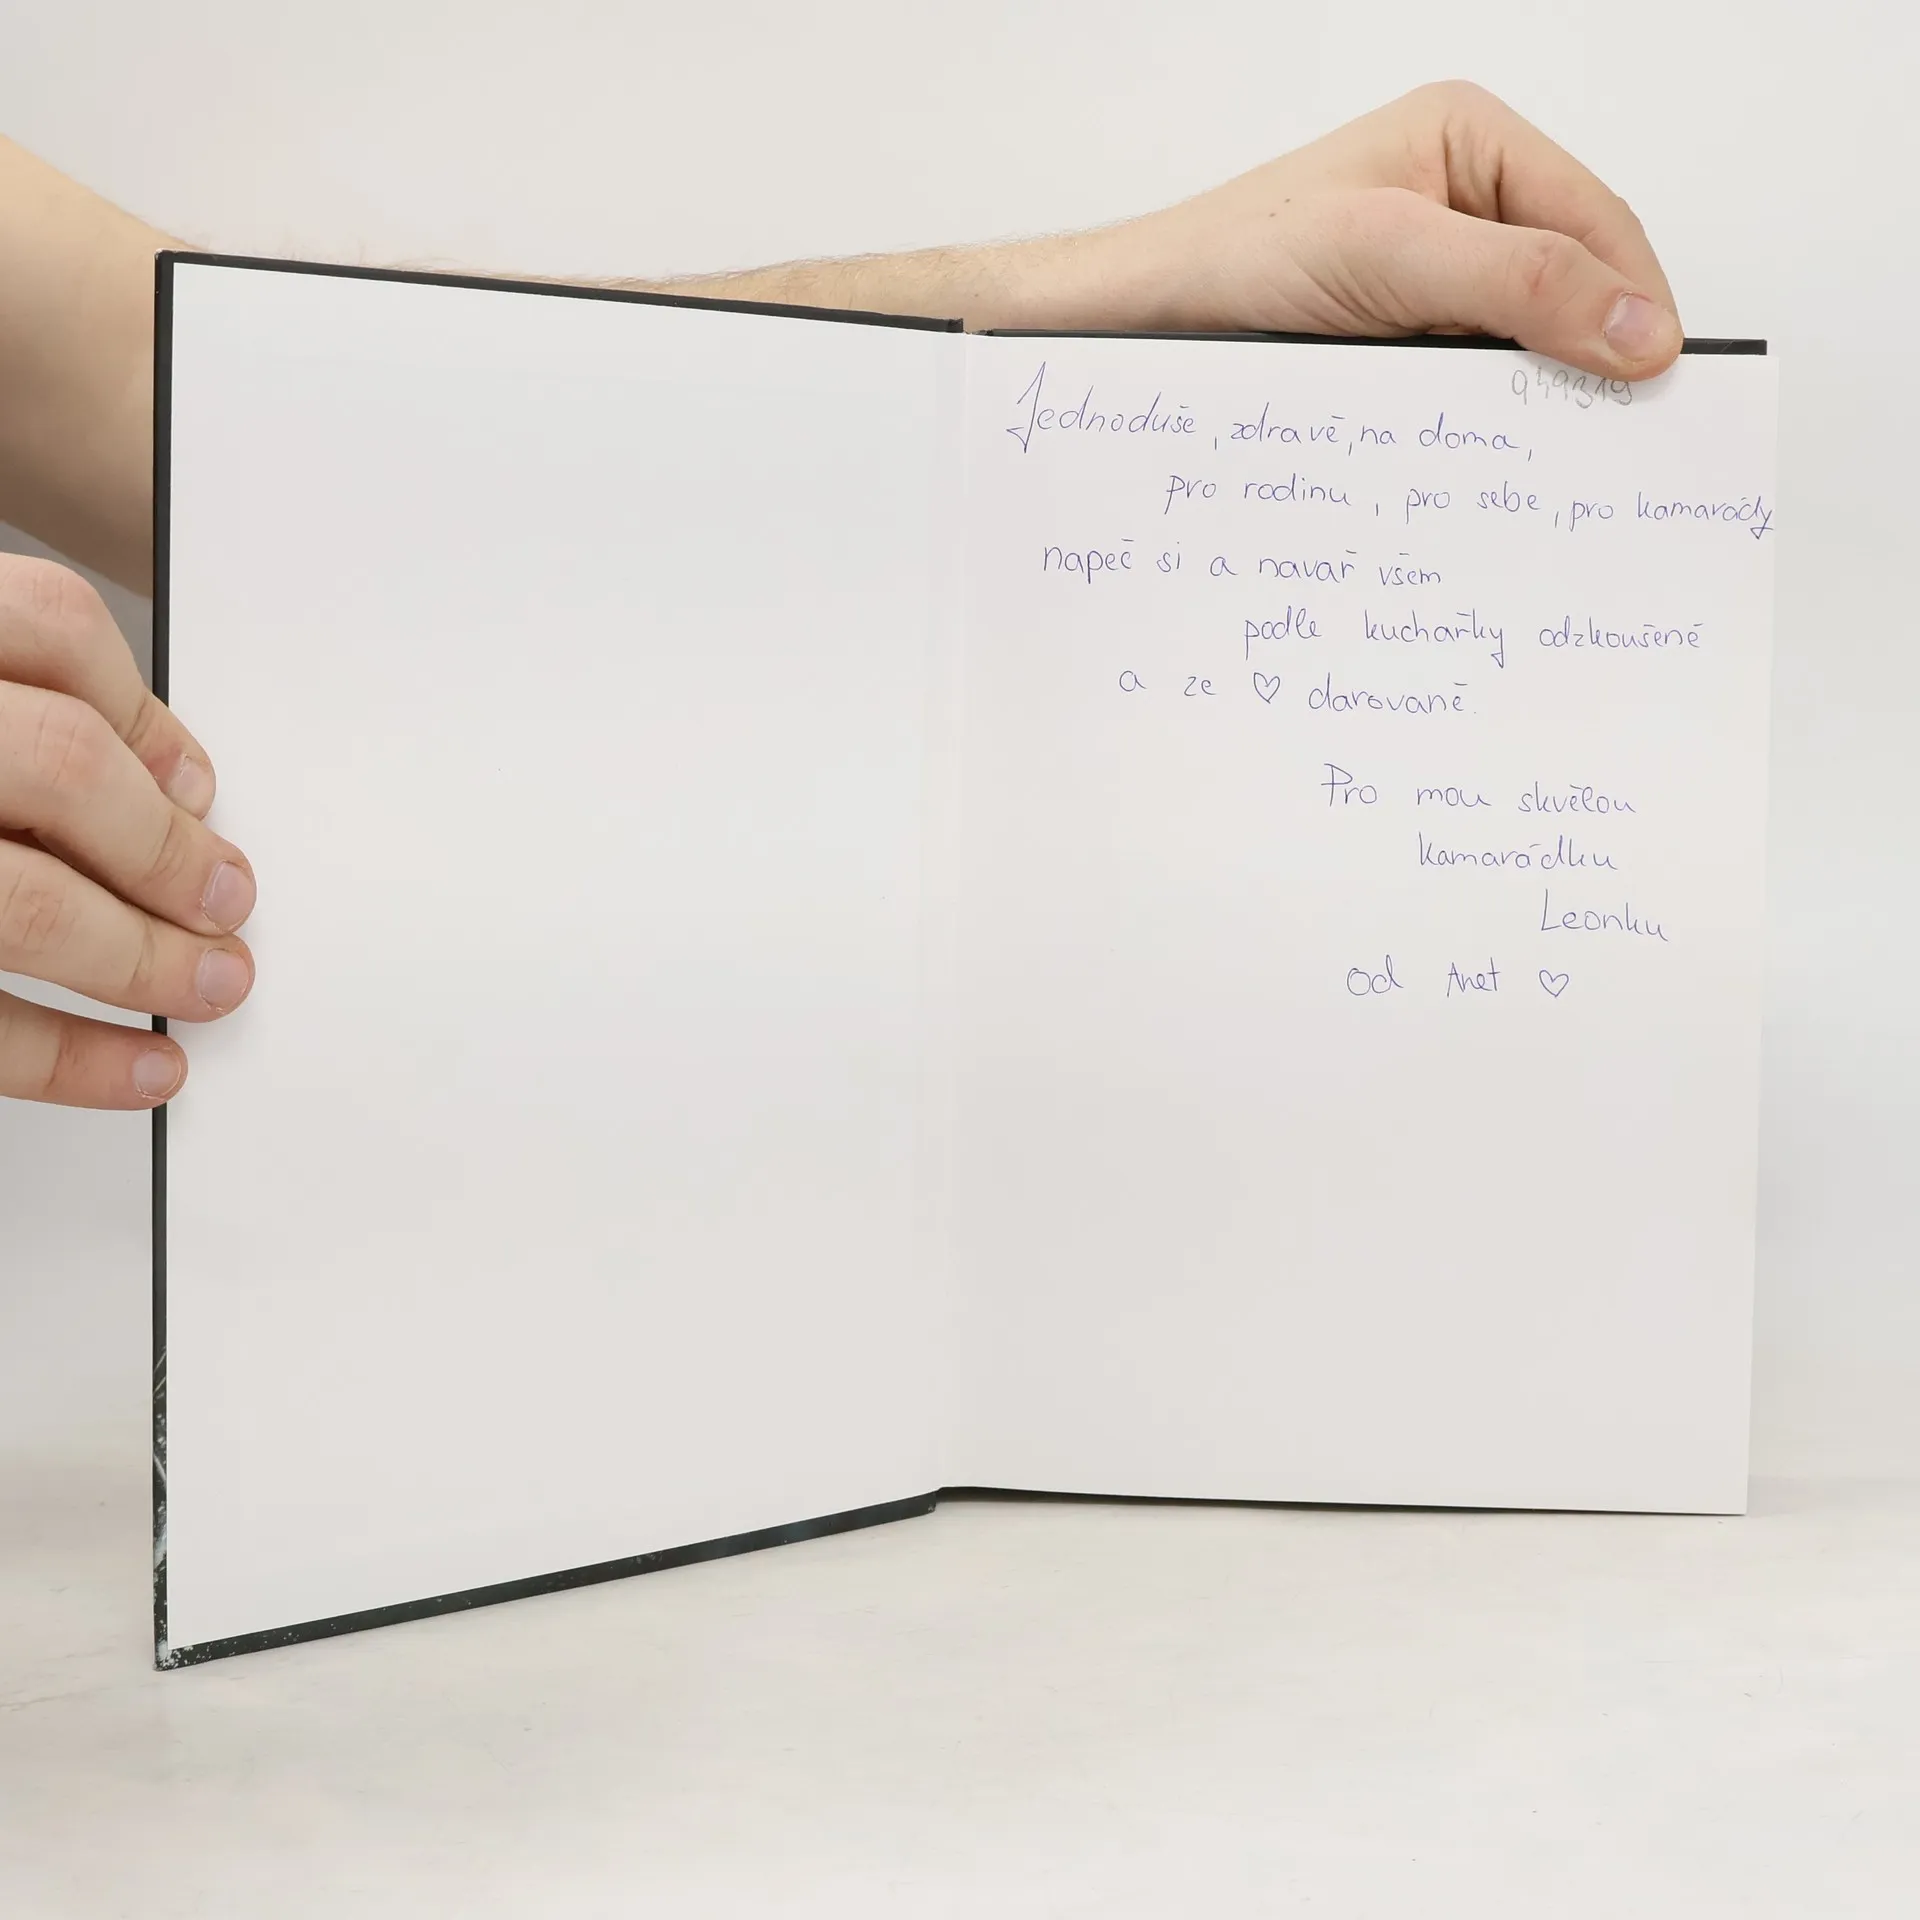 949319
Jednoduše, zdravě, na doma,
pro rodinu, pro sebe, pro kamarády
napeč si a navař všem
podle kuchařky odzkoušené
a ze ♡ darované.
Pro mou skvělou
kamarádku
Leonku
od Anet ♡